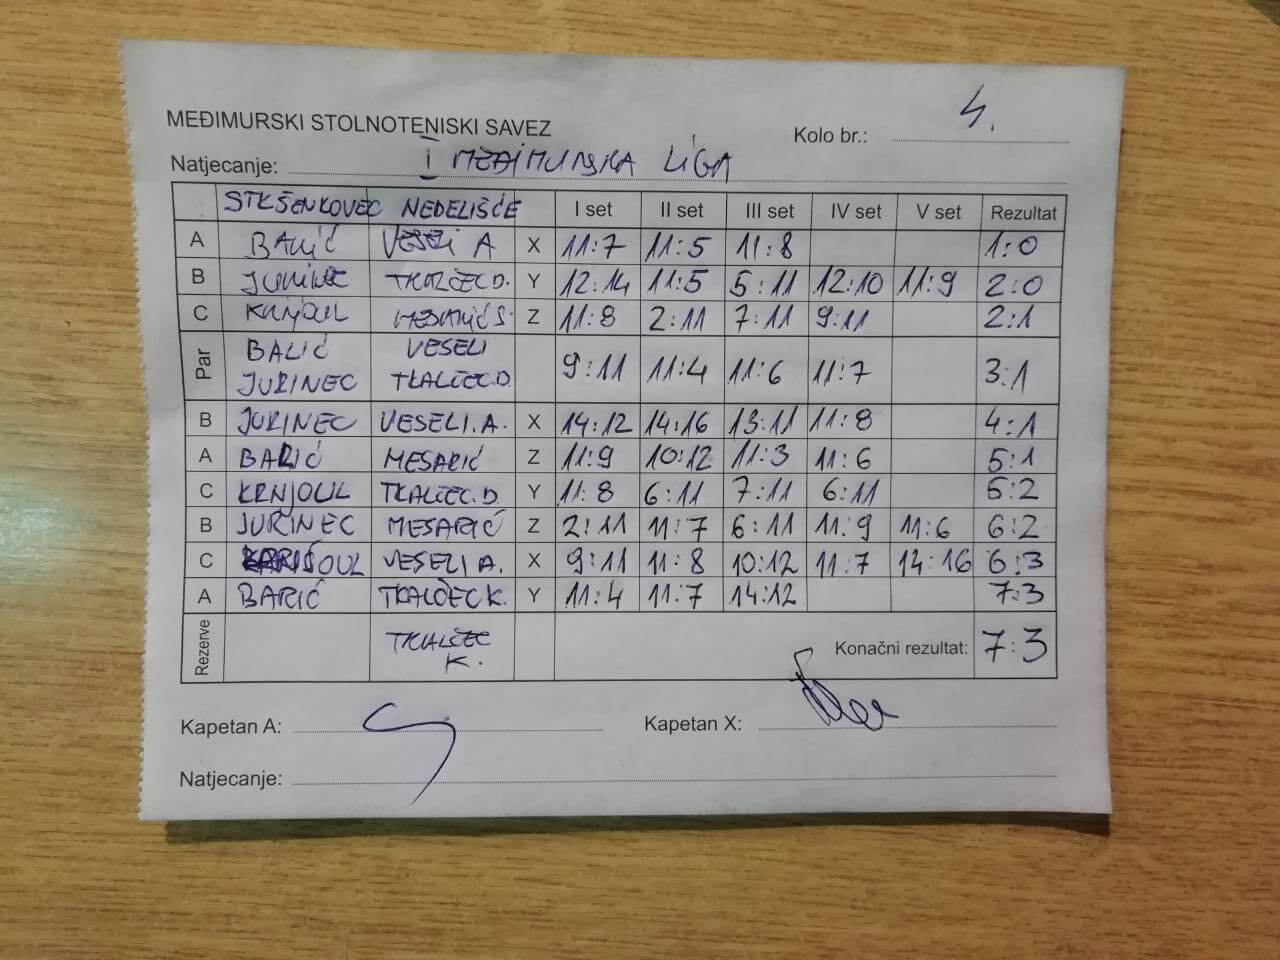 MEĐIMURSKI STOLNOTENISKI SAVEZ
Kolo br.: 4.
Natjecanje: I MEĐIMURSKA LIGA
STK ŠENKOVEC NEDELIŠĆE I set II set III set IV set V set Rezultat
A BALIĆ VESELI A X 11:7 11:5 11:8 1:0
B JURINEC TKALČEC D. Y 12:14 11:5 5:11 12:10 11:9 2:0
C KRNJOUL MESARIĆ S. Z 11:8 2:11 7:11 9:11 2:1
Par BALIĆ VESELI
JURINEC TKALČEC D. 9:11 11:4 11:6 11:7 3:1
B JURINEC VESELI.A. X 14:12 14:16 13:11 11:8 4:1
A BALIĆ MESARIĆ Z 11:9 10:12 11:3 11:6 5:1
C KRNJOUL TKALČEC.D. Y 11:8 6:11 7:11 6:11 5:2
B JURINEC MESARIĆ Z 2:11 11:7 6:11 11:9 11:6 6:2
C VESELI A. X 9:11 11:8 10:12 11:7 14:16 6:3
A BARIĆ TKALČEC K. Y 11:4 11:7 14:12 7:3
Rezerve TKALČEC
K. Konačni rezultat: 7:3
Kapetan A: Kapetan X:
Natjecanje: